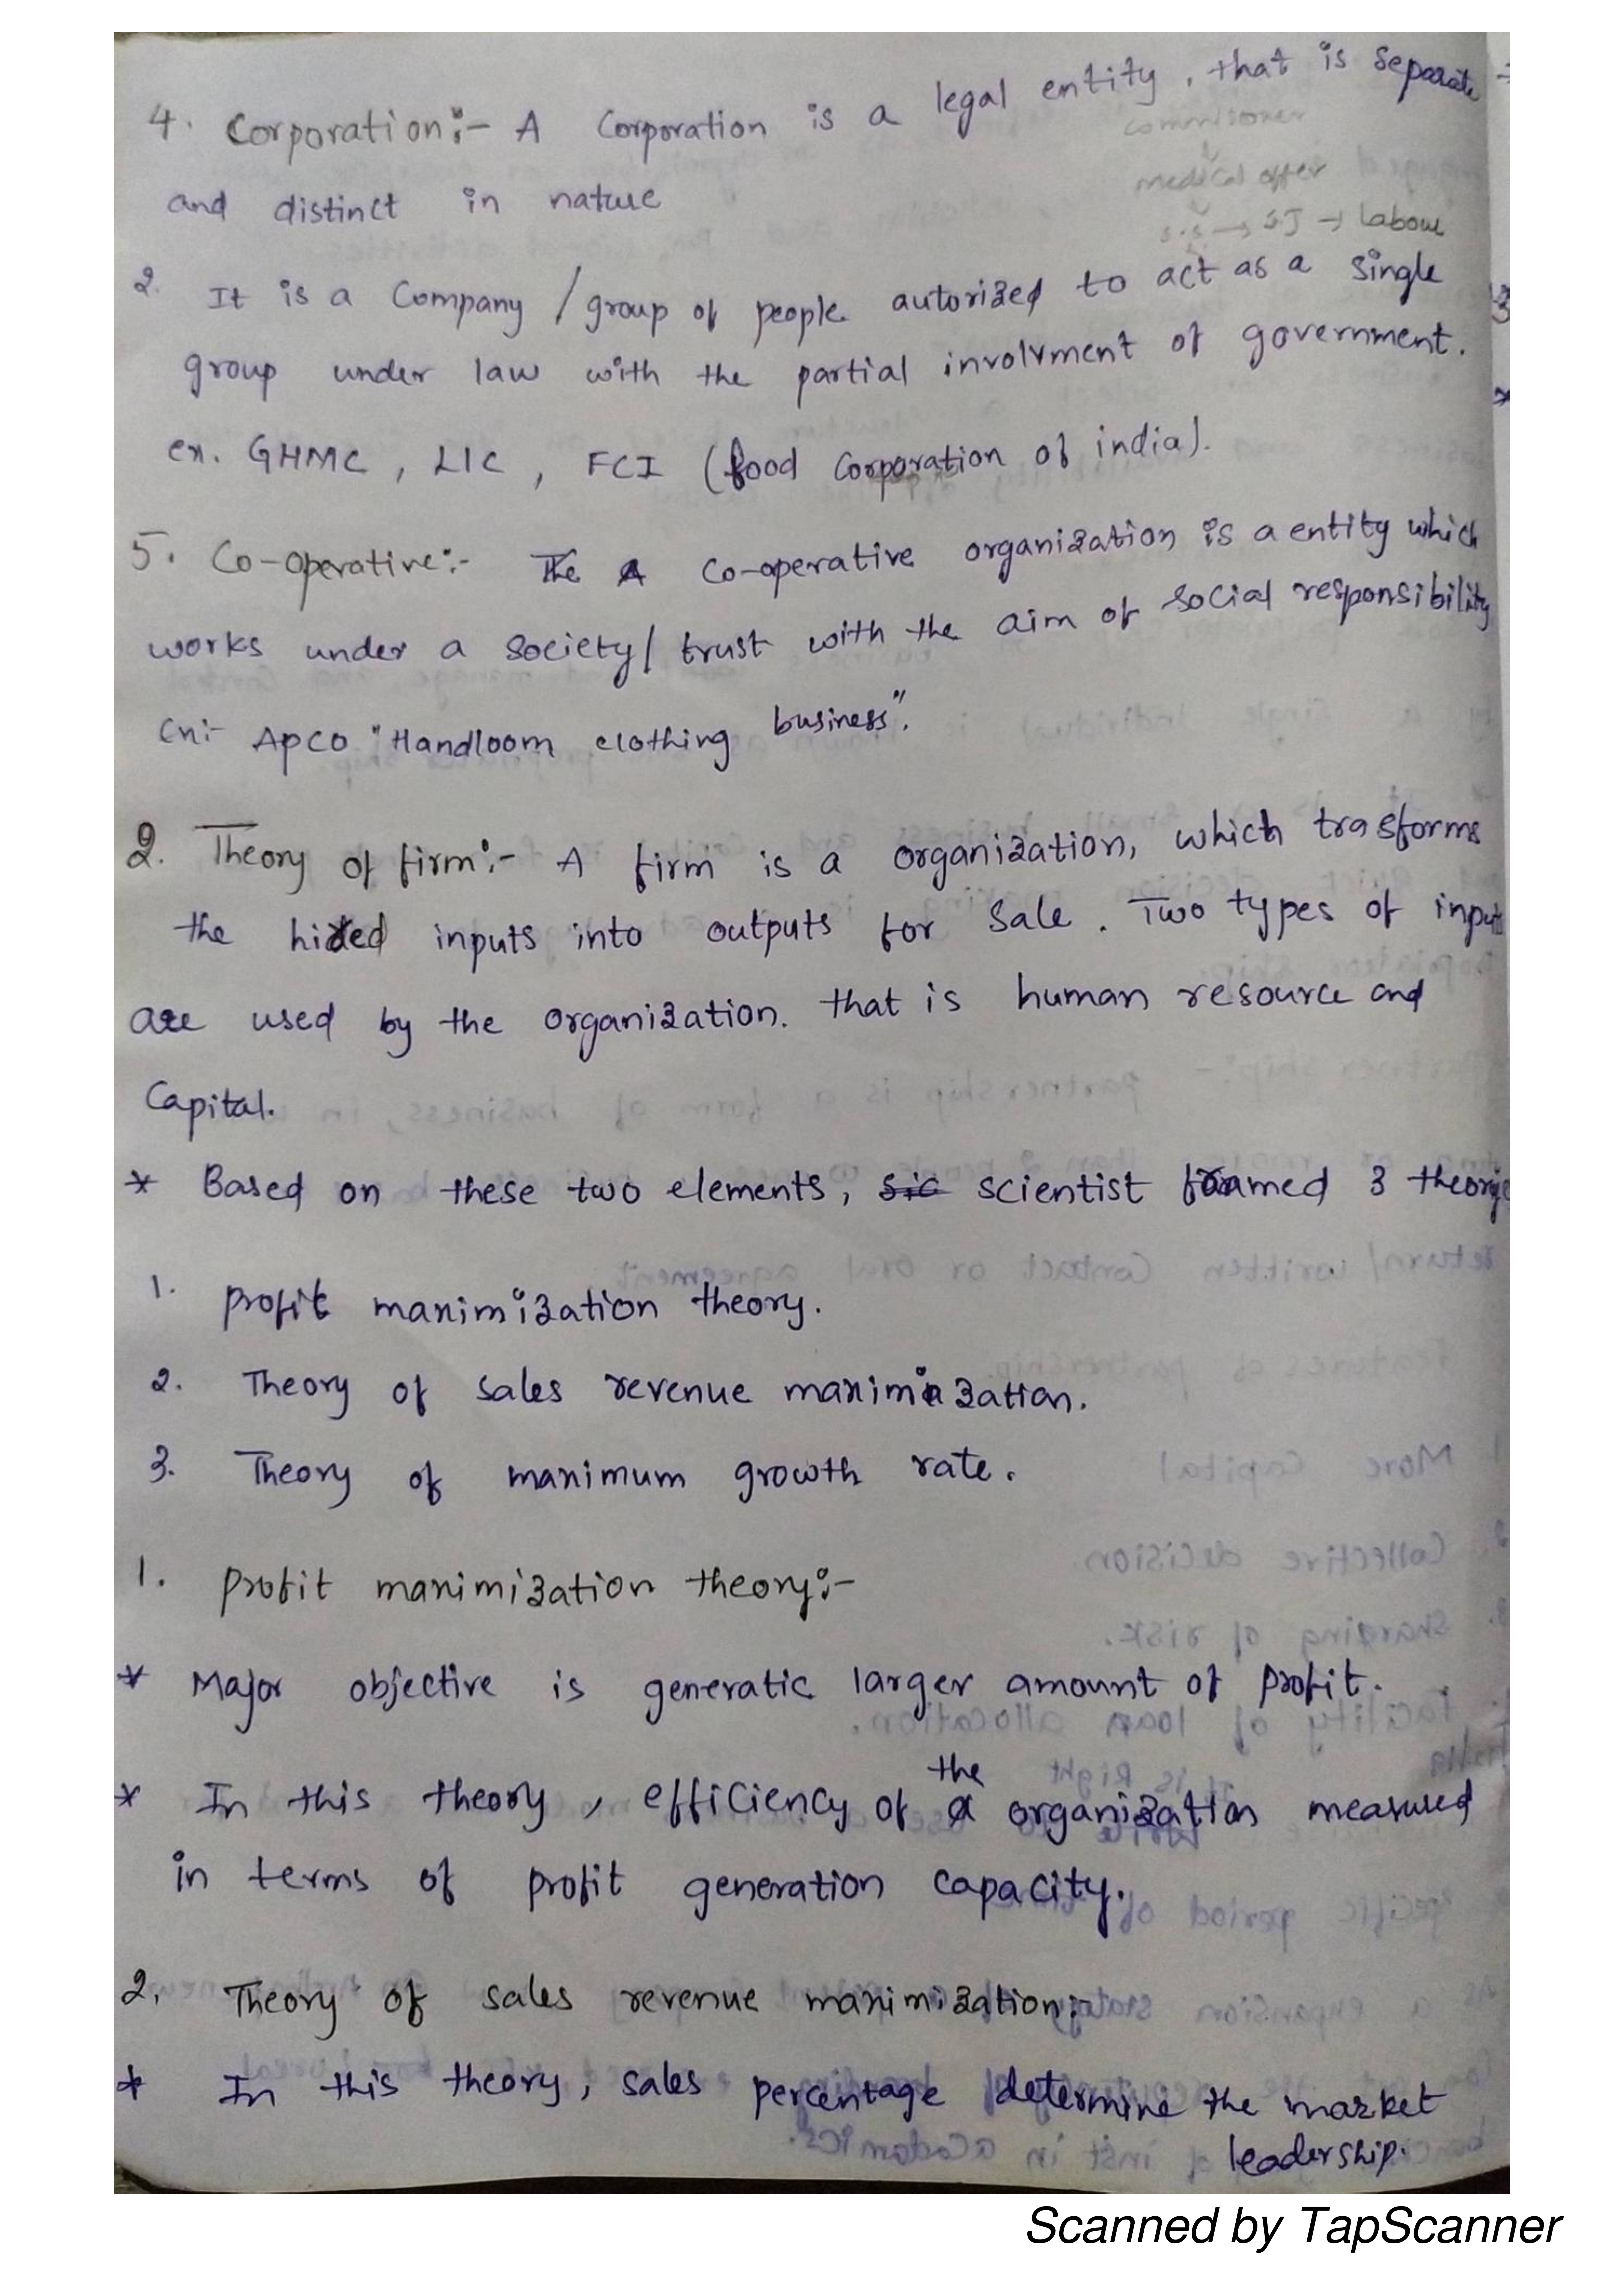 4. Corporation:- A Corporation is a legal entity, that is separate
commissioner
and distinct in nature
medical offer
s.s → S.I → labour
2. It is a Company / group of people autorized to act as a single
group under law with the partial involvment of government.
ex. GHMC, LIC, FCI (food Corporation of india).
5. Co-operative:- The A Co-operative organization is a entity which
works under a society/ trust with the aim of social responsibility
Ex:- Apco "Handloom clothing business".
2. Theory of firm:- A firm is a organization, which trasforms
the hired inputs into outputs for sale. Two types of inputs
are used by the organization. that is human resource and
Capital.
* Based on these two elements, sic scientist framed 3 theories
1. profit maximization theory.
2. Theory of sales revenue maximization.
3. Theory of maximum growth rate.
1. profit maximization theory:-
* Major objective is generatic larger amount of profit.
the
* In this theory, efficiency of a organization measured
in terms of profit generation capacity.
2. Theory of sales revenue maximization:-
* In this theory, sales percentage determine the market
leadership.
Scanned by TapScanner